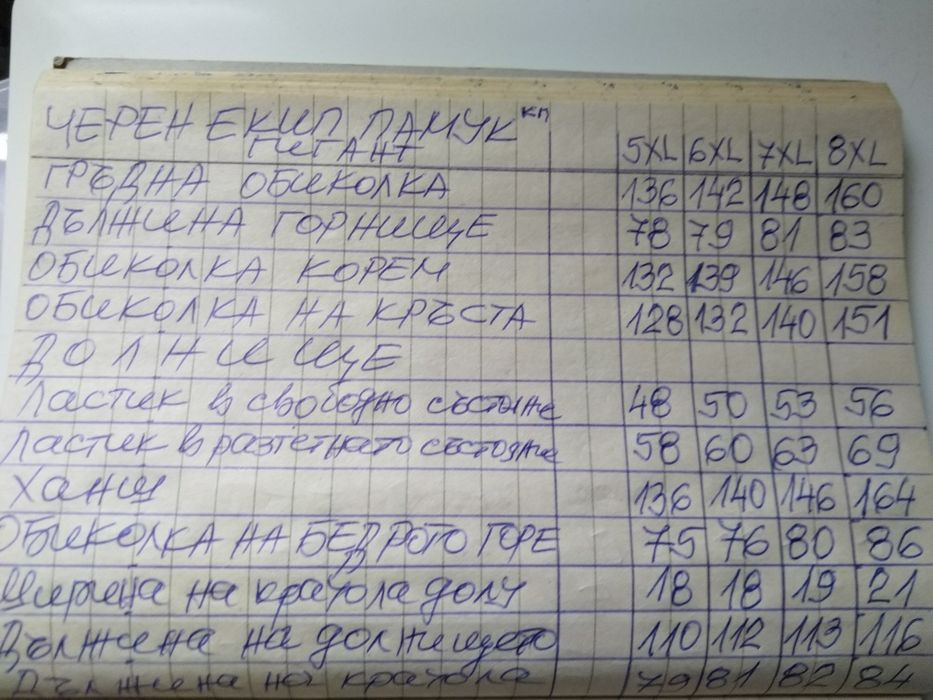 ЧЕРЕН ЕКИП ПАМУК КП
ГИГАНТ 5XL 6XL 7XL 8XL
ГРЪДНА ОБИКОЛКА 136 142 148 160
ДЪЛЖИНА ГОРНИЩЕ 78 79 81 83
ОБИКОЛКА КОРЕМ 132 139 146 158
ОБИКОЛКА НА КРЪСТА 128 132 140 151
ДОЛНИЩЕ
Ластик в свободно състояние 48 50 53 56
Ластик в разтегнато състояние 58 60 63 69
Ханш 136 140 146 164
ОБИКОЛКА НА БЕДРОТО ГОРЕ 75 76 80 86
Ширина на крачола долу 18 18 19 21
Дължина на долнището 110 112 113 116
Дължина на крачола 79 81 82 84